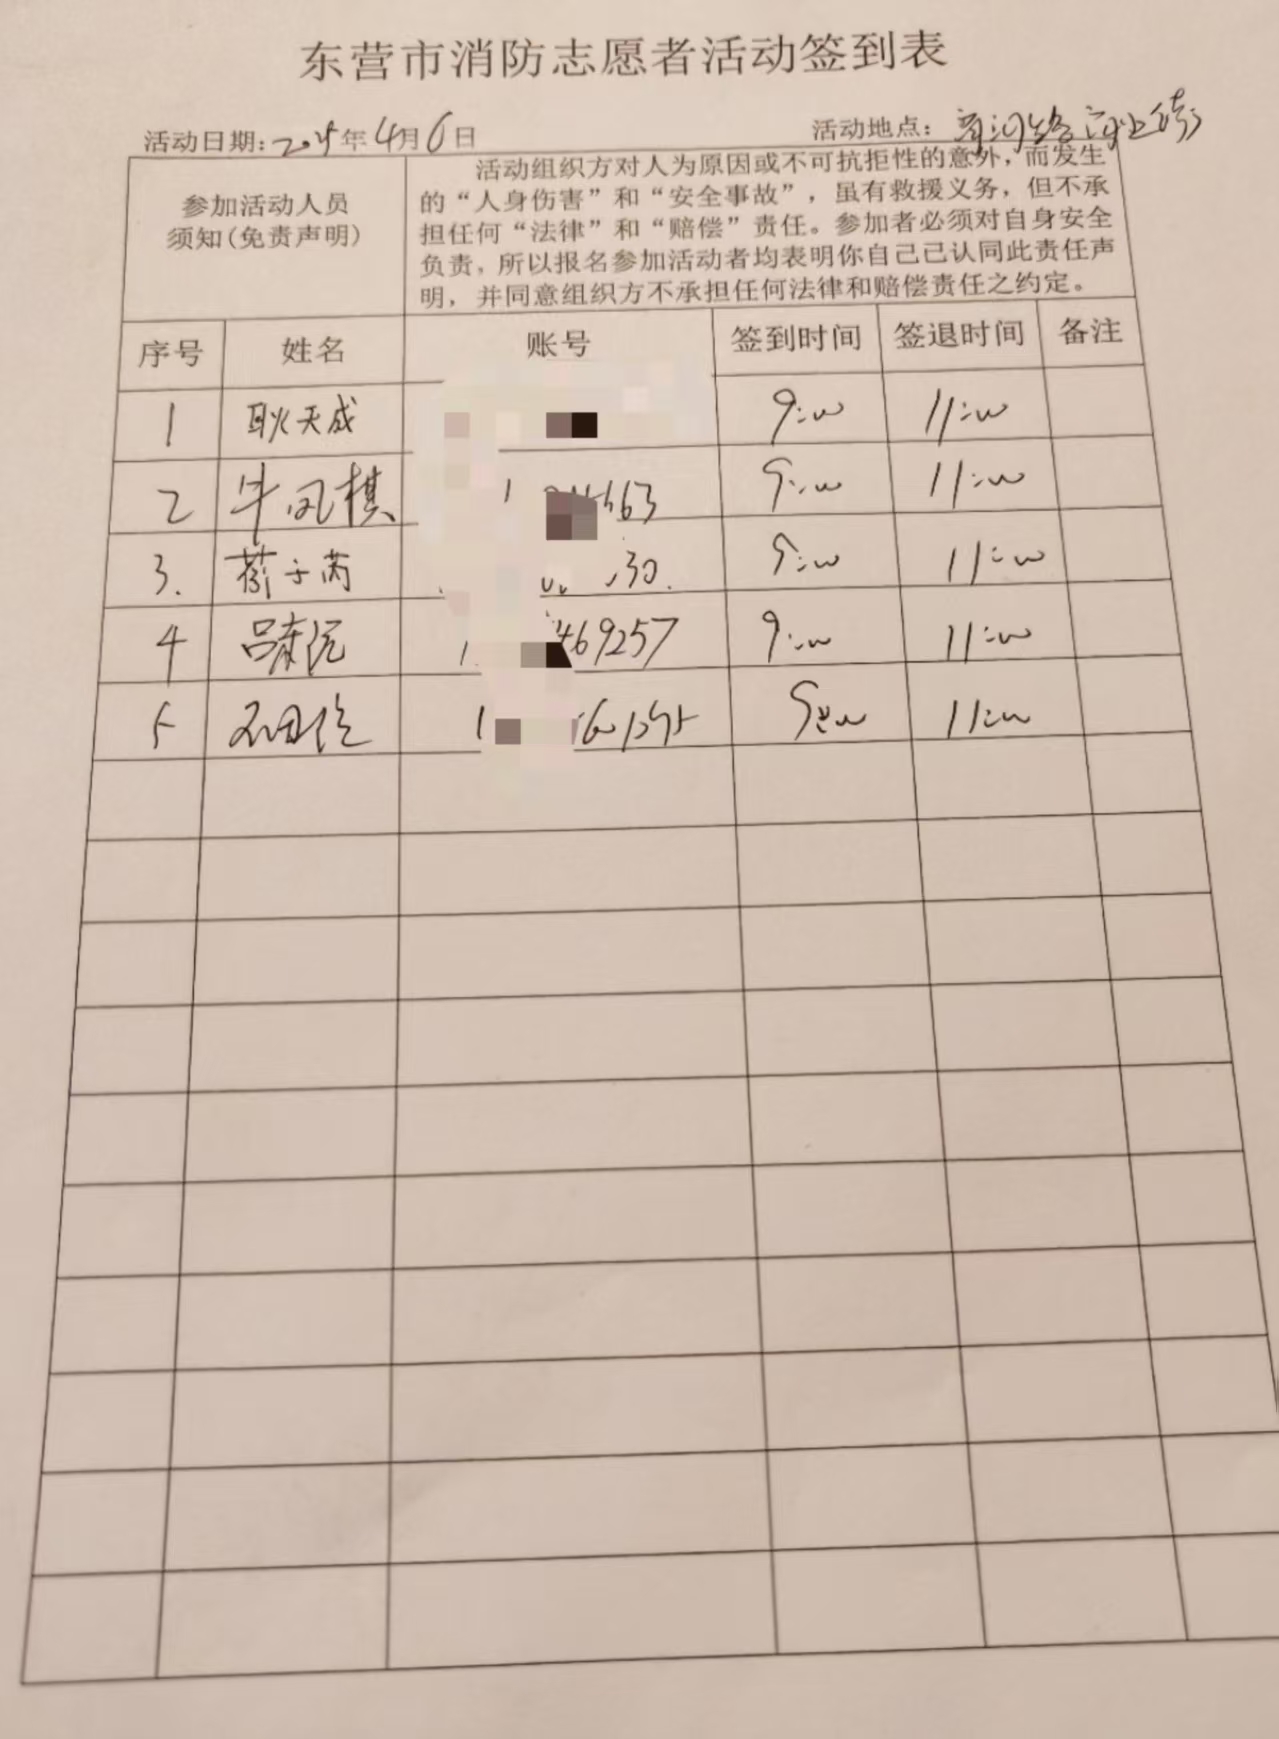 东营市消防志愿者活动签到表
活动日期: 年4月6日 活动地点:
参加活动人员
须知(免责声明)
活动组织方对人为原因或不可抗拒性的意外，而发生
的“人身伤害”和“安全事故”，虽有救援义务，但不承
担任何“法律”和“赔偿”责任。参加者必须对自身安全
负责，所以报名参加活动者均表明你自己已认同此责任声
明，并同意组织方不承担任何法律和赔偿责任之约定。
序号 姓名 账号 签到时间 签退时间 备注
1 耿天成 9:00 11:00
2 牛凤棋 663 9:00 11:00
3. 子芮 30. 9:00 11:00
4 吕 469257 9:00 11:00
5 9:00 11:00